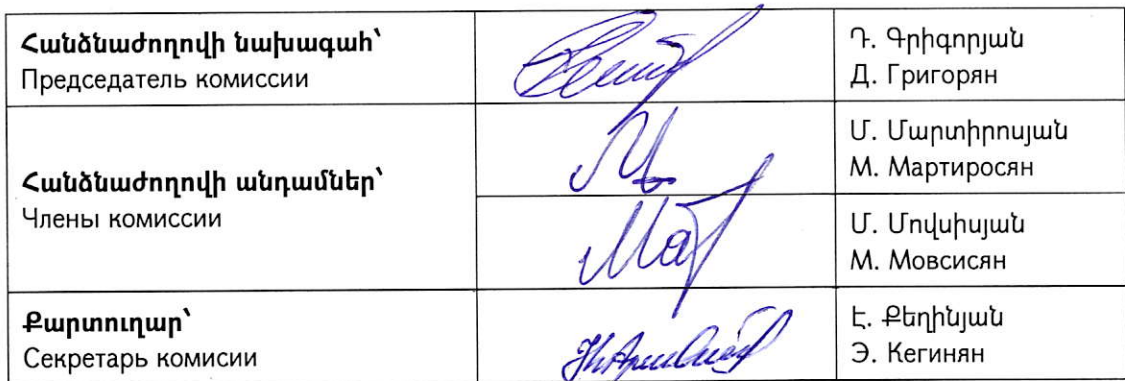 Հանձնաժողովի նախագահ՝
Председатель комиссии
Դ. Գրիգորյան
Д. Григорян
Հանձնաժողովի անդամներ՝
Члены комиссии
Մ. Մարտիրոսյան
М. Мартиросян
Մ. Մովսիսյան
М. Мовсисян
Քարտուղար՝
Секретарь комисии
Է. Քեղինյան
Э. Кегинян